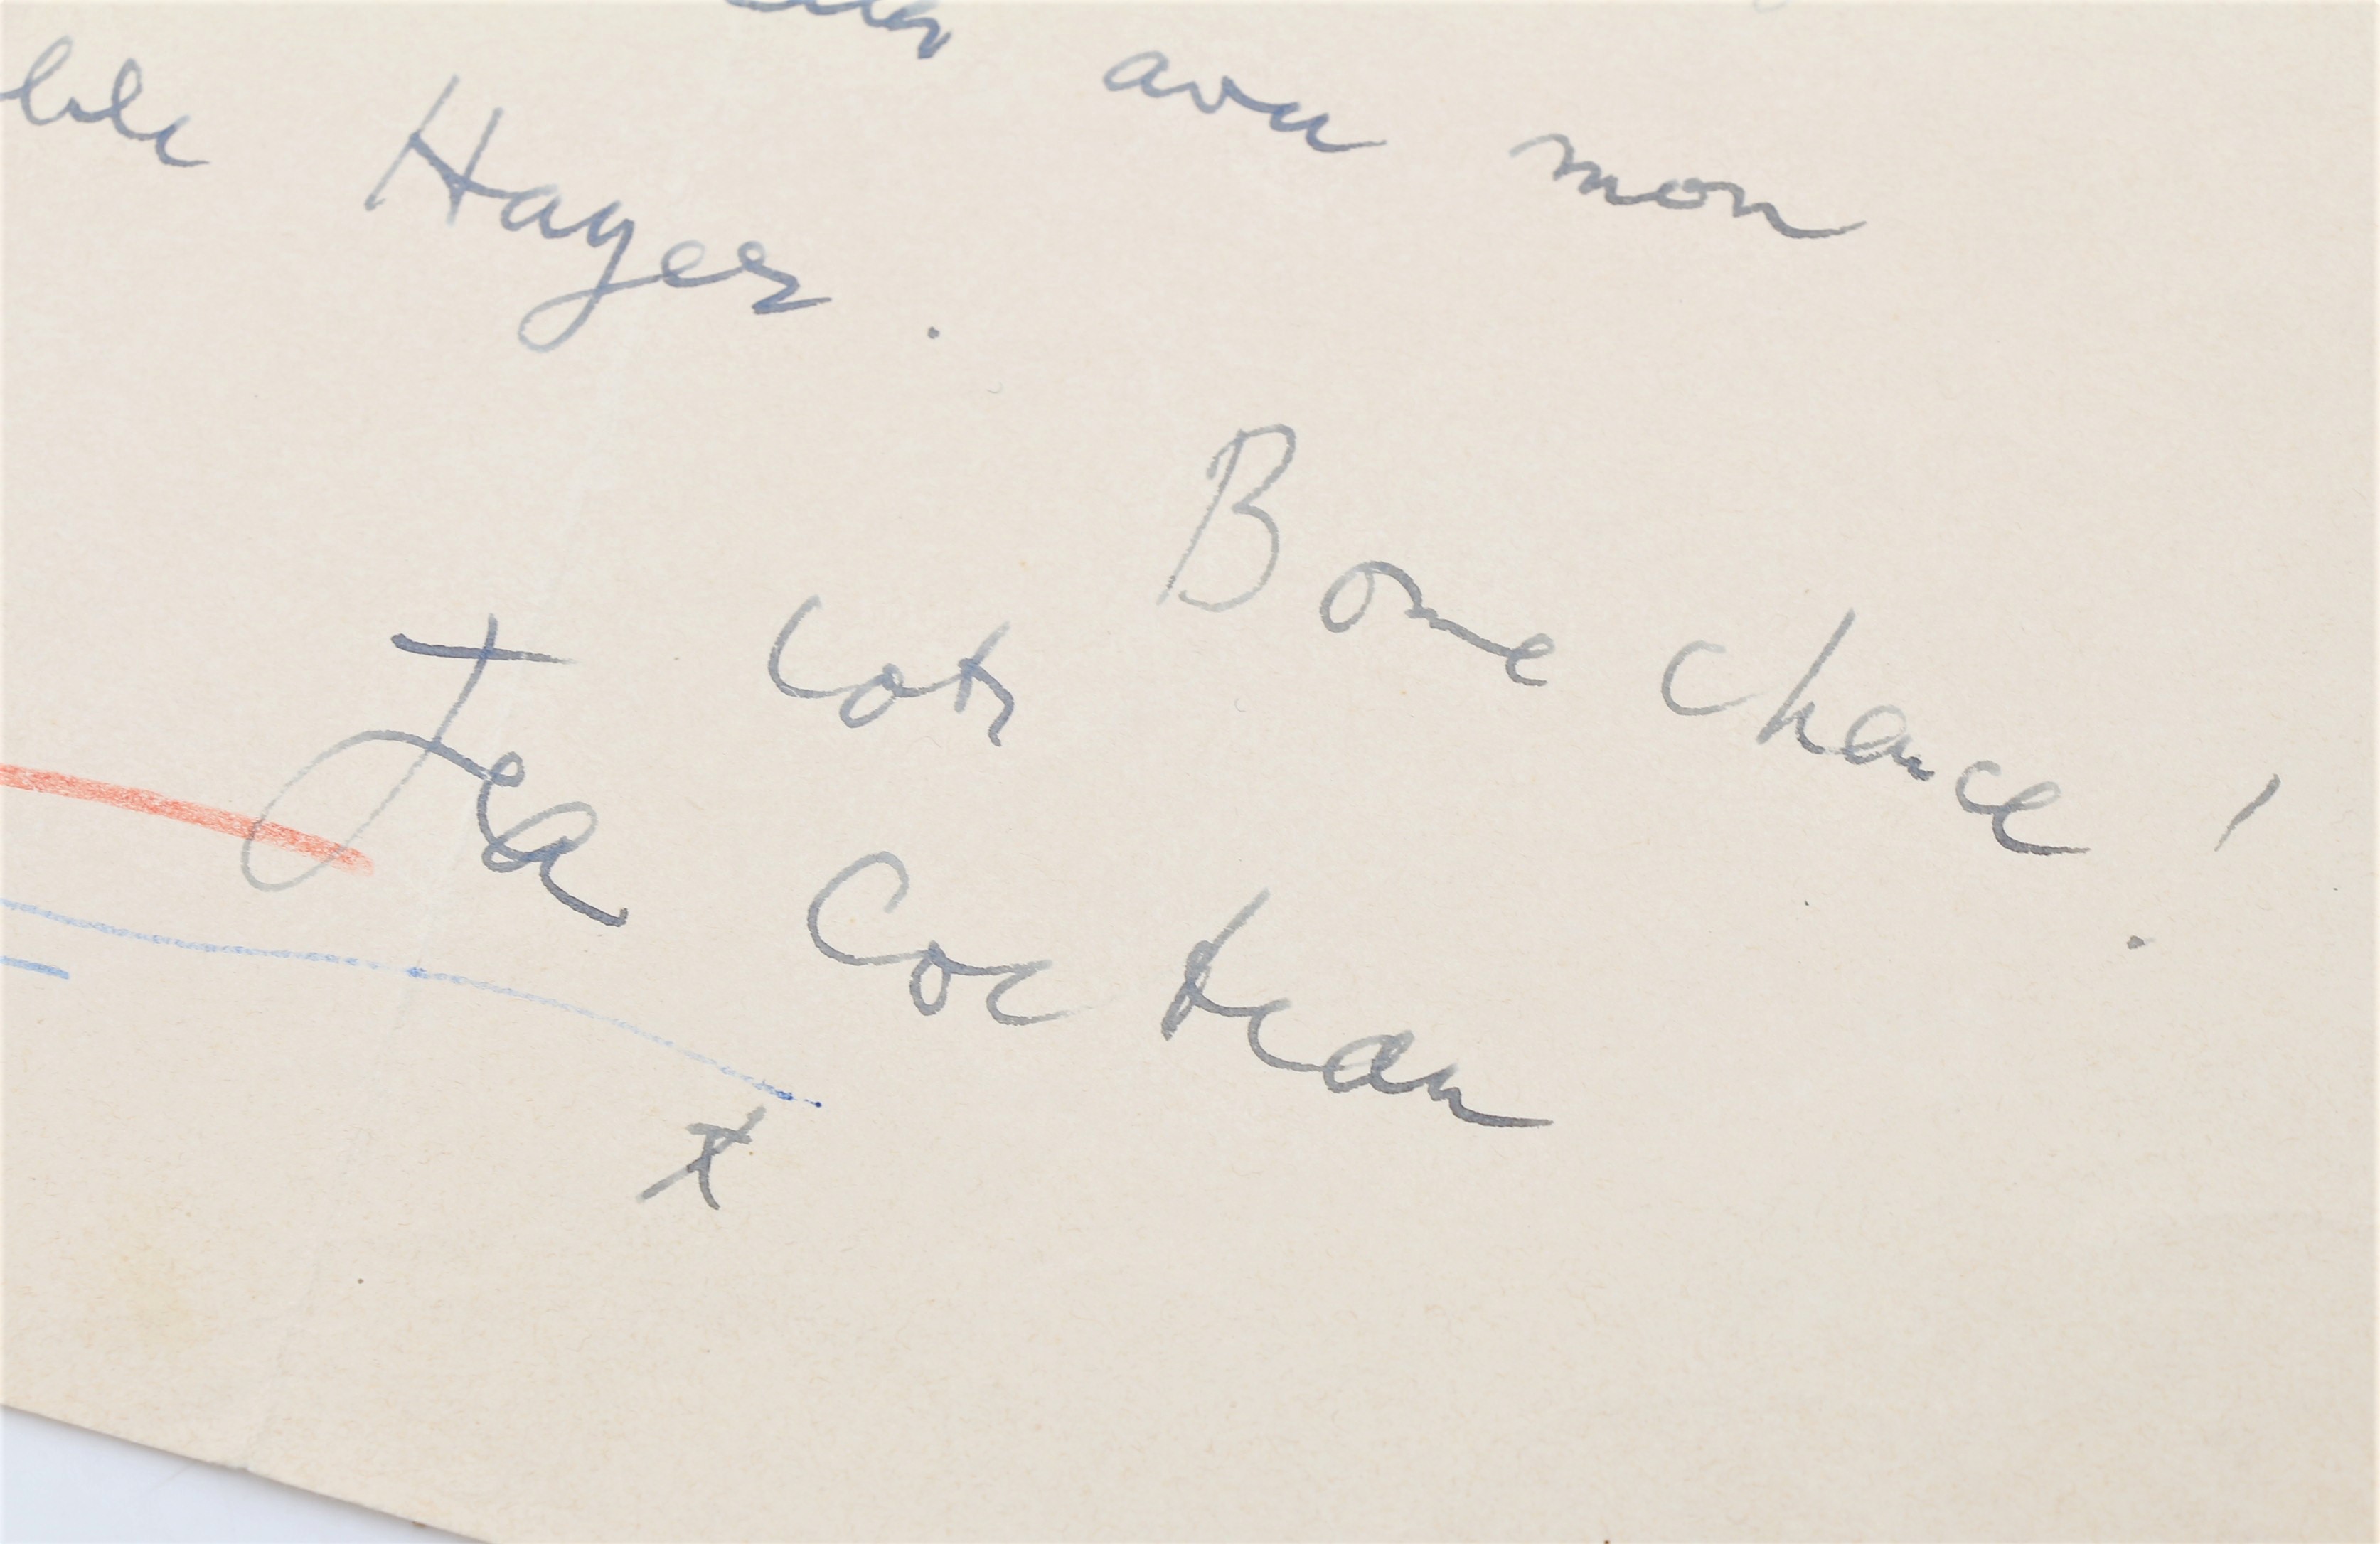 avec mon
Hayer.
Bonne chance!
Jean Cocteau